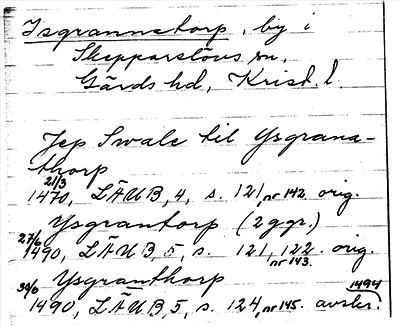 Isgrannatorp, by i
Skepparslövs sn,
Gärds hd, Krist. l.
Jep Swale til Ysgrana-
thorp
21/3
1470, LÄUB, 4, s. 121, nr 142. orig.
Ysgrantorp (2 ggr.)
27/6
1490, LÄUB, 5, s. 121, 122. orig.
nr 143.
Ysgranthorp
30/6 1494
1490, LÄUB, 5, s. 124, nr 145. avskr.